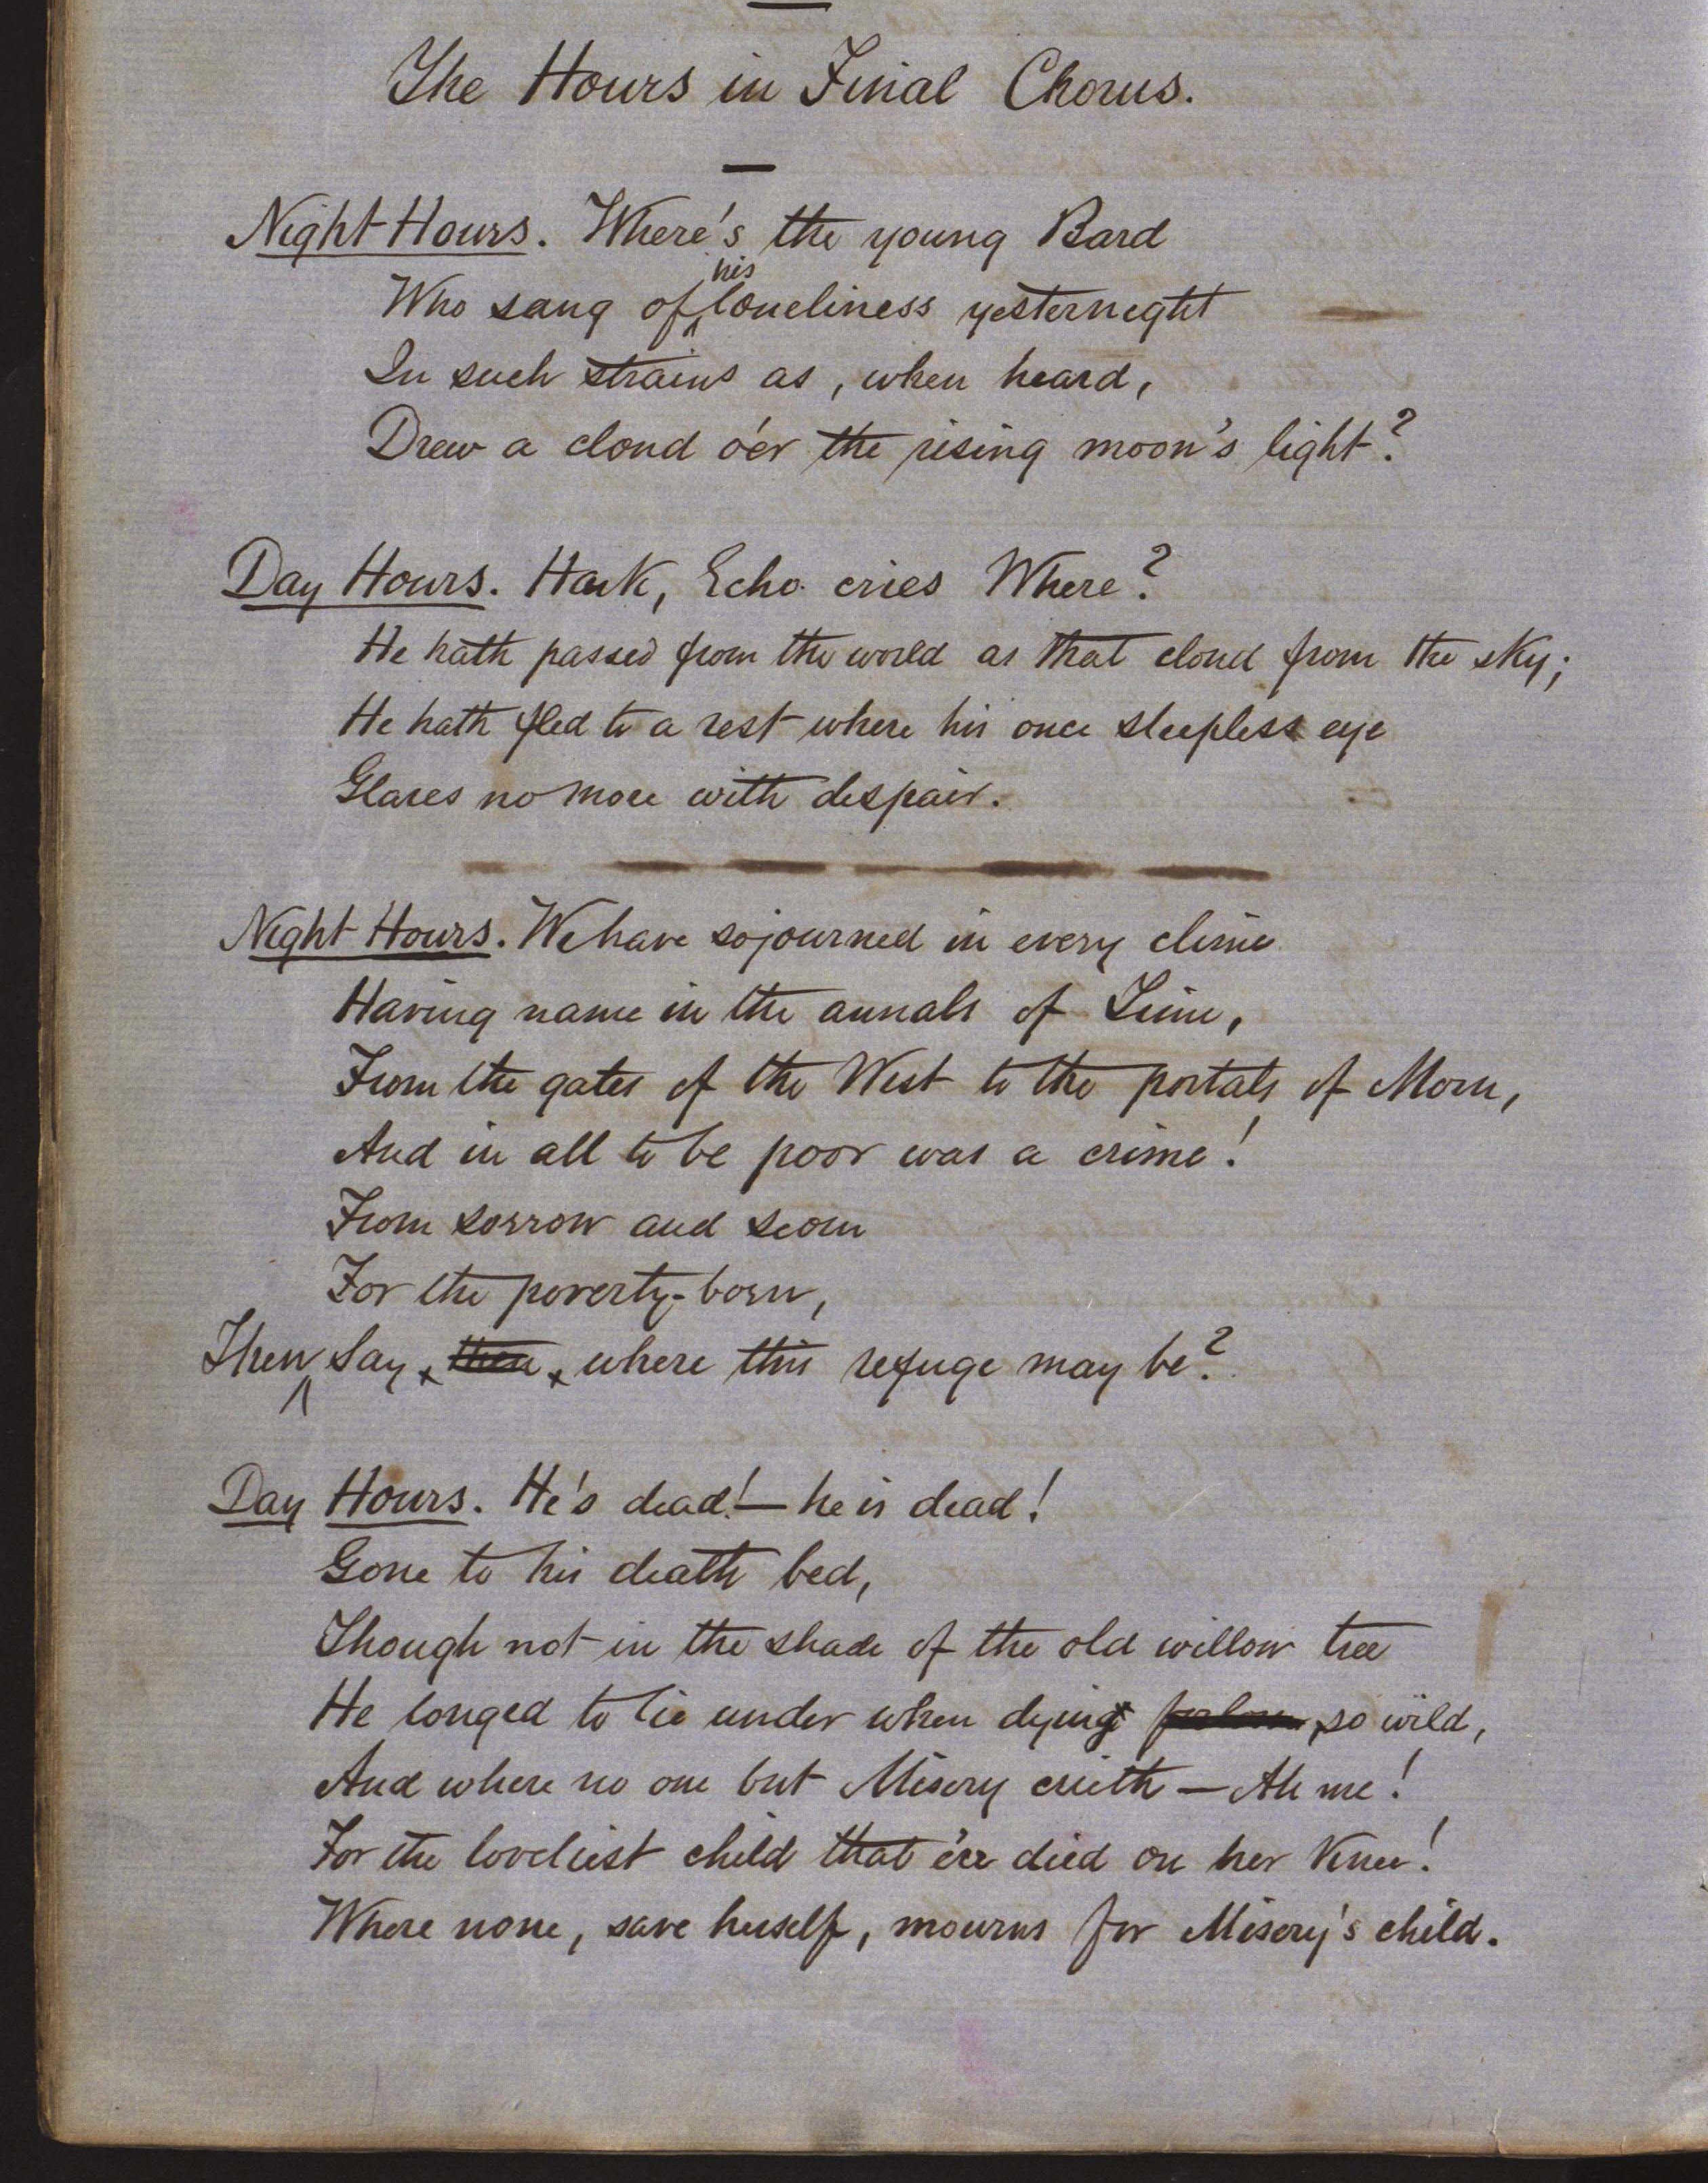 The Hours in Final Chorus.
Night Hours. Where's the young Bard
Who sang of his loneliness yesternight
In such strains as, when heard,
Drew a cloud o'er the rising moon's light?
Day Hours. Hark, Echo cries Where?
He hath passed from the world as that cloud from the sky;
He hath fled to a rest where his once sleepless eye
Glares no more with despair.
Night Hours. We have sojourned in every clime
Having name in the annals of Time,
From the gates of the West to the portals of Morn,
And in all to be poor was a crime!
From sorrow and scorn
For the poverty-born,
Then Say, then, where this refuge may be?
Day Hours. He's dead!—he is dead!
Gone to his death bed,
Though not in the shade of the old willow tree
He longed to lie under when dying forlorn, so wild,
And where no one but Misery crieth — Ah me!
For the loveliest child that e'er died on her Knee!
Where none, save herself, mourns for Misery's child.